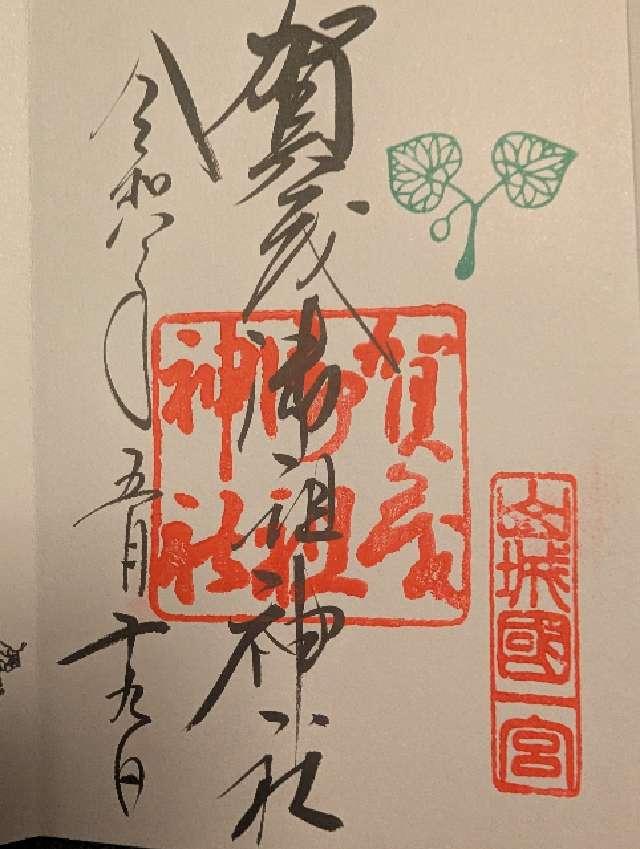 山城國一宮
賀茂御祖神社
賀茂御祖神社
令和八年五月十九日